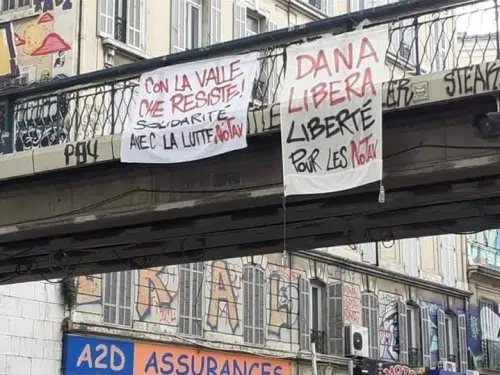 CON LA VALLE
CHE RESISTE!
SOLIDARITÉ
AVEC LA LUTTE NoTAV
DANA
LIBERA
LIBERTÉ
POUR LES NoTAV
STEAK
A2D ASSURANCES